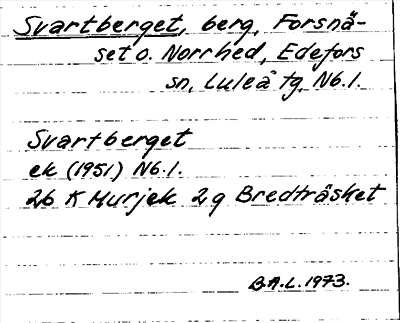 Svartberget, berg, Forsnä-
set o. Norrhed, Edefors
sn, Luleå tg, Nb.1.
Svartberget
ek (1951) Nb.1.
26 K Murjek 2g Bredträsket
B.A.L. 1973.